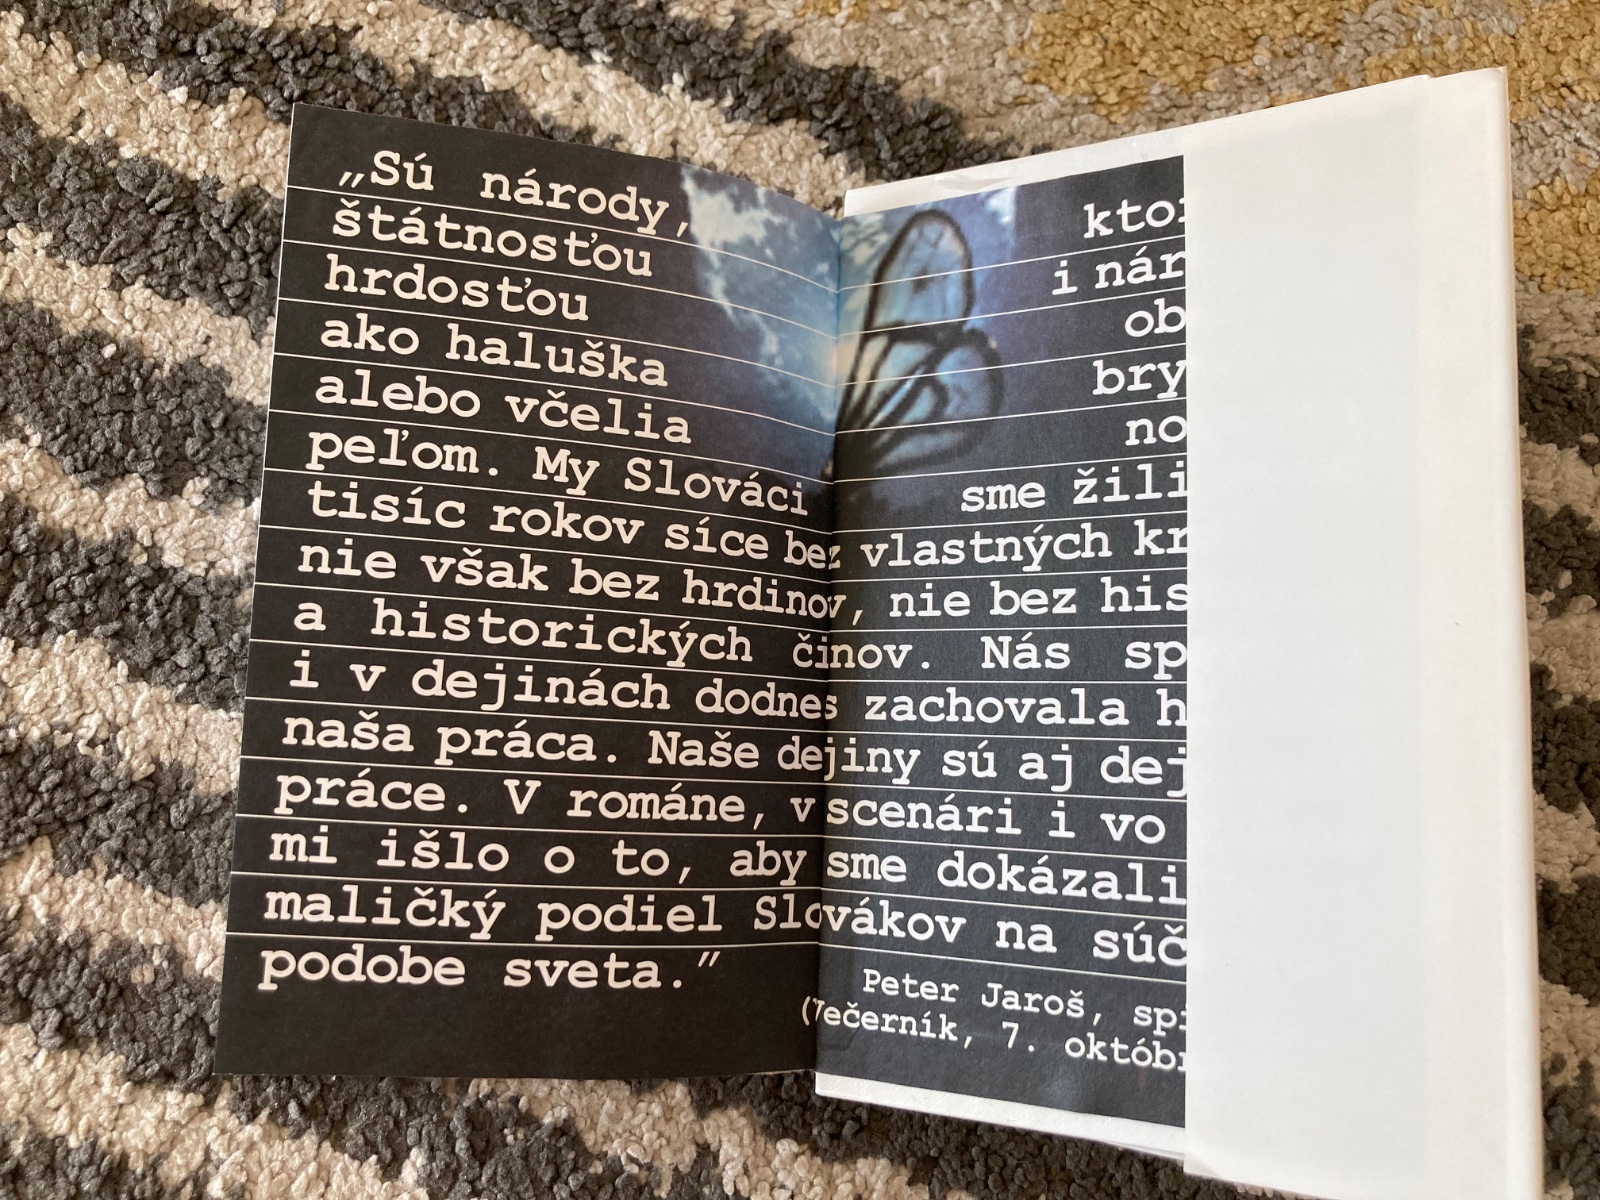 „Sú národy, ktor
štátnosťou i nár
hrdosťou ob
ako haluška bry
alebo včelia no
peľom. My Slováci sme žili
tisíc rokov síce bez vlastných kr
nie však bez hrdinov, nie bez his
a historických činov. Nás sp
i v dejinách dodnes zachovala h
naša práca. Naše dejiny sú aj dej
práce. V románe, v scenári i vo
mi išlo o to, aby sme dokázali
maličký podiel Slovákov na súč
podobe sveta.”
Peter Jaroš, spi
(Večerník, 7. októbr